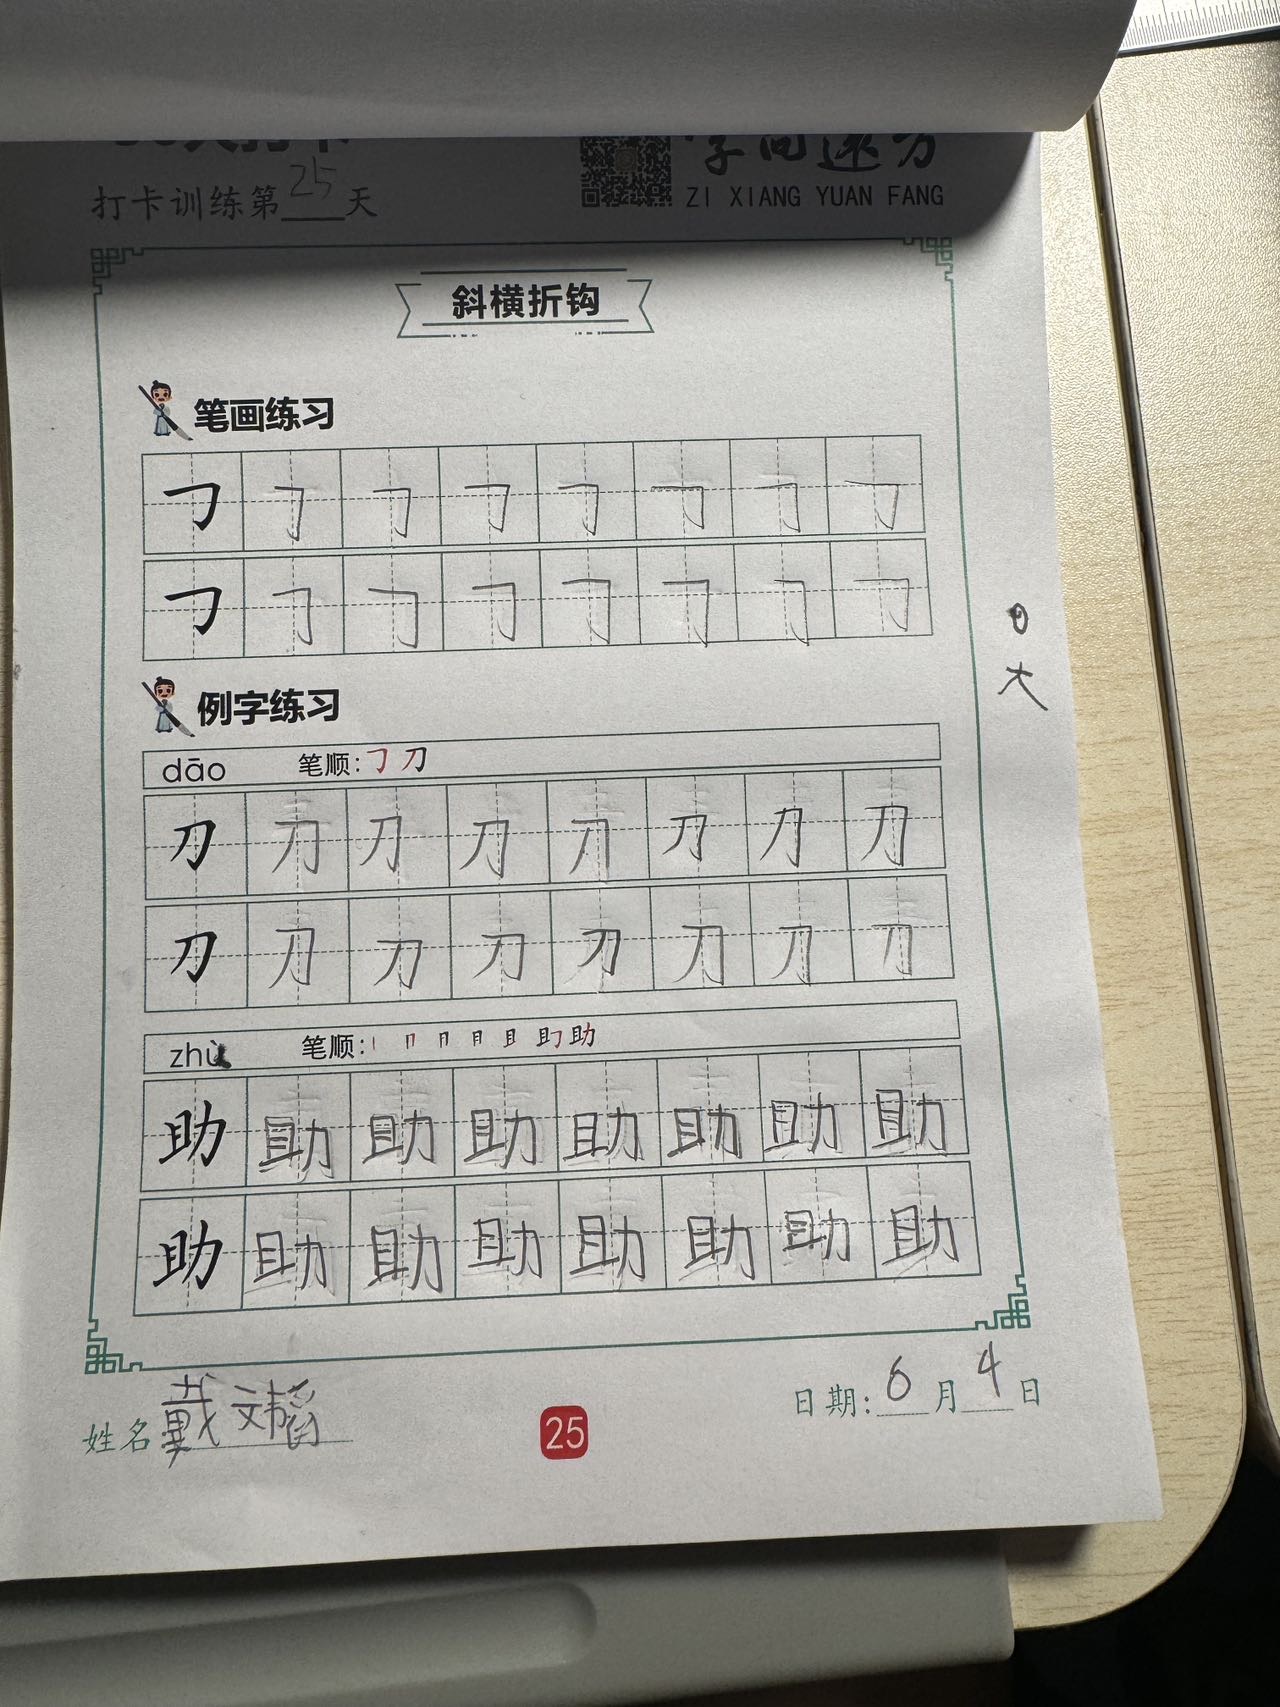 打卡训练第25天
ZI XIANG YUAN FANG
斜横折钩
笔画练习
㇆ ㇆ ㇆ ㇆ ㇆ ㇆ ㇆ ㇆
㇆ ㇆ ㇆ ㇆ ㇆ ㇆ ㇆ ㇆
例字练习
dāo 笔顺:㇆ 刀
刀 刀 刀 刀 刀 刀 刀 刀
刀 刀 刀 刀 刀 刀 刀 刀
zhù 笔顺: 助
助 助 助 助 助 助 助 助
助 助 助 助 助 助 助 助
大
姓名 戴文韬
25
日期: 6月4日